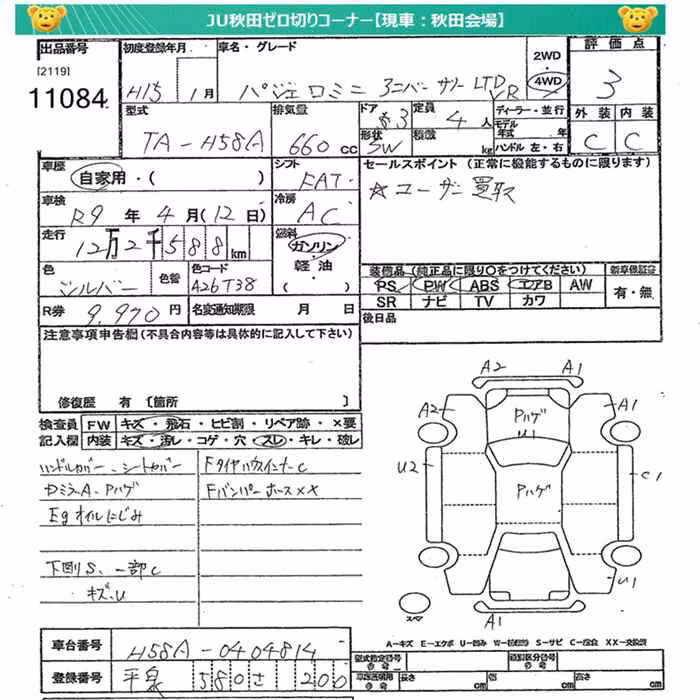 JU秋田ゼロ切りコーナー【現車：秋田会場】
出品番号
[2119]
11084
初度登録年月
H15 1月
車名・グレード
パジェロミニ アニバーサリーLTD VR
2WD
4WD
評価点
3
型式
TA-H58A
排気量
660cc
ドア
3
形状
SW
定員
4人
積載
kg
ディーラー・並行
モデル年式 年
ハンドル 左・右
外装 内装
C C
車歴
自家用・( )
シフト
FAT
車検
R9年4月(12日)
冷房
AC
走行
12万2千588km
燃料
ガソリン・軽油
( )
色
シルバー
色替
色コード
A26T38
R券
9,970円
名変通知期限 月 日
セールスポイント (正常に機能するものに限ります)
☆ユーザー買取
装備品(純正品に限り〇をつけてください)
PS PW ABS エアB AW
SR ナビ TV カワ
新車保証書
有・無
後日品
注意事項申告欄(不具合内容等は具体的に記入して下さい)
修復歴 有 [箇所 ]
検査員記入欄
FW キズ・飛石・ヒビ割・リペア跡・×要
内装 キズ・汚レ・コゲ・穴・スレ・キレ・破レ
ハンドルカバー・シートカバー
DミラーA・Pハゲ
Egオイルにじみ
下回りS、一部C
キズ・U
FタイヤハウスインナーC
Fバンパーホース××
A2 A1
A2 A1
Pハゲ
U1
U2 C1
Pハゲ
U1
スペア
A1
A-キズ E-エクボ U-凹み W-波(板跡) S-サビ C-腐食 XX-交換済
車台番号
H58A-0404814
登録番号
平泉 580 さ 200
型式指定番号
類別区分番号
長さ cm 幅 cm 高さ cm